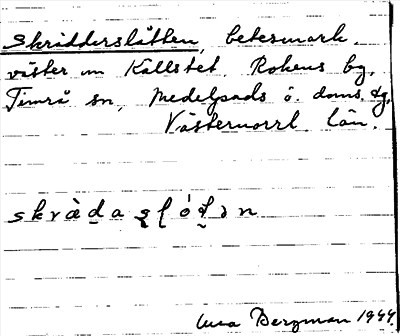 Skrädderslåtten, betesmark.
väster om Kallstet, Rokens bg,
Timrå sn, Medelpads ö. doms. dg,
Västernorrl. län.
skrä̀da ʂḷó̇t̯ən
Bergman 1944.